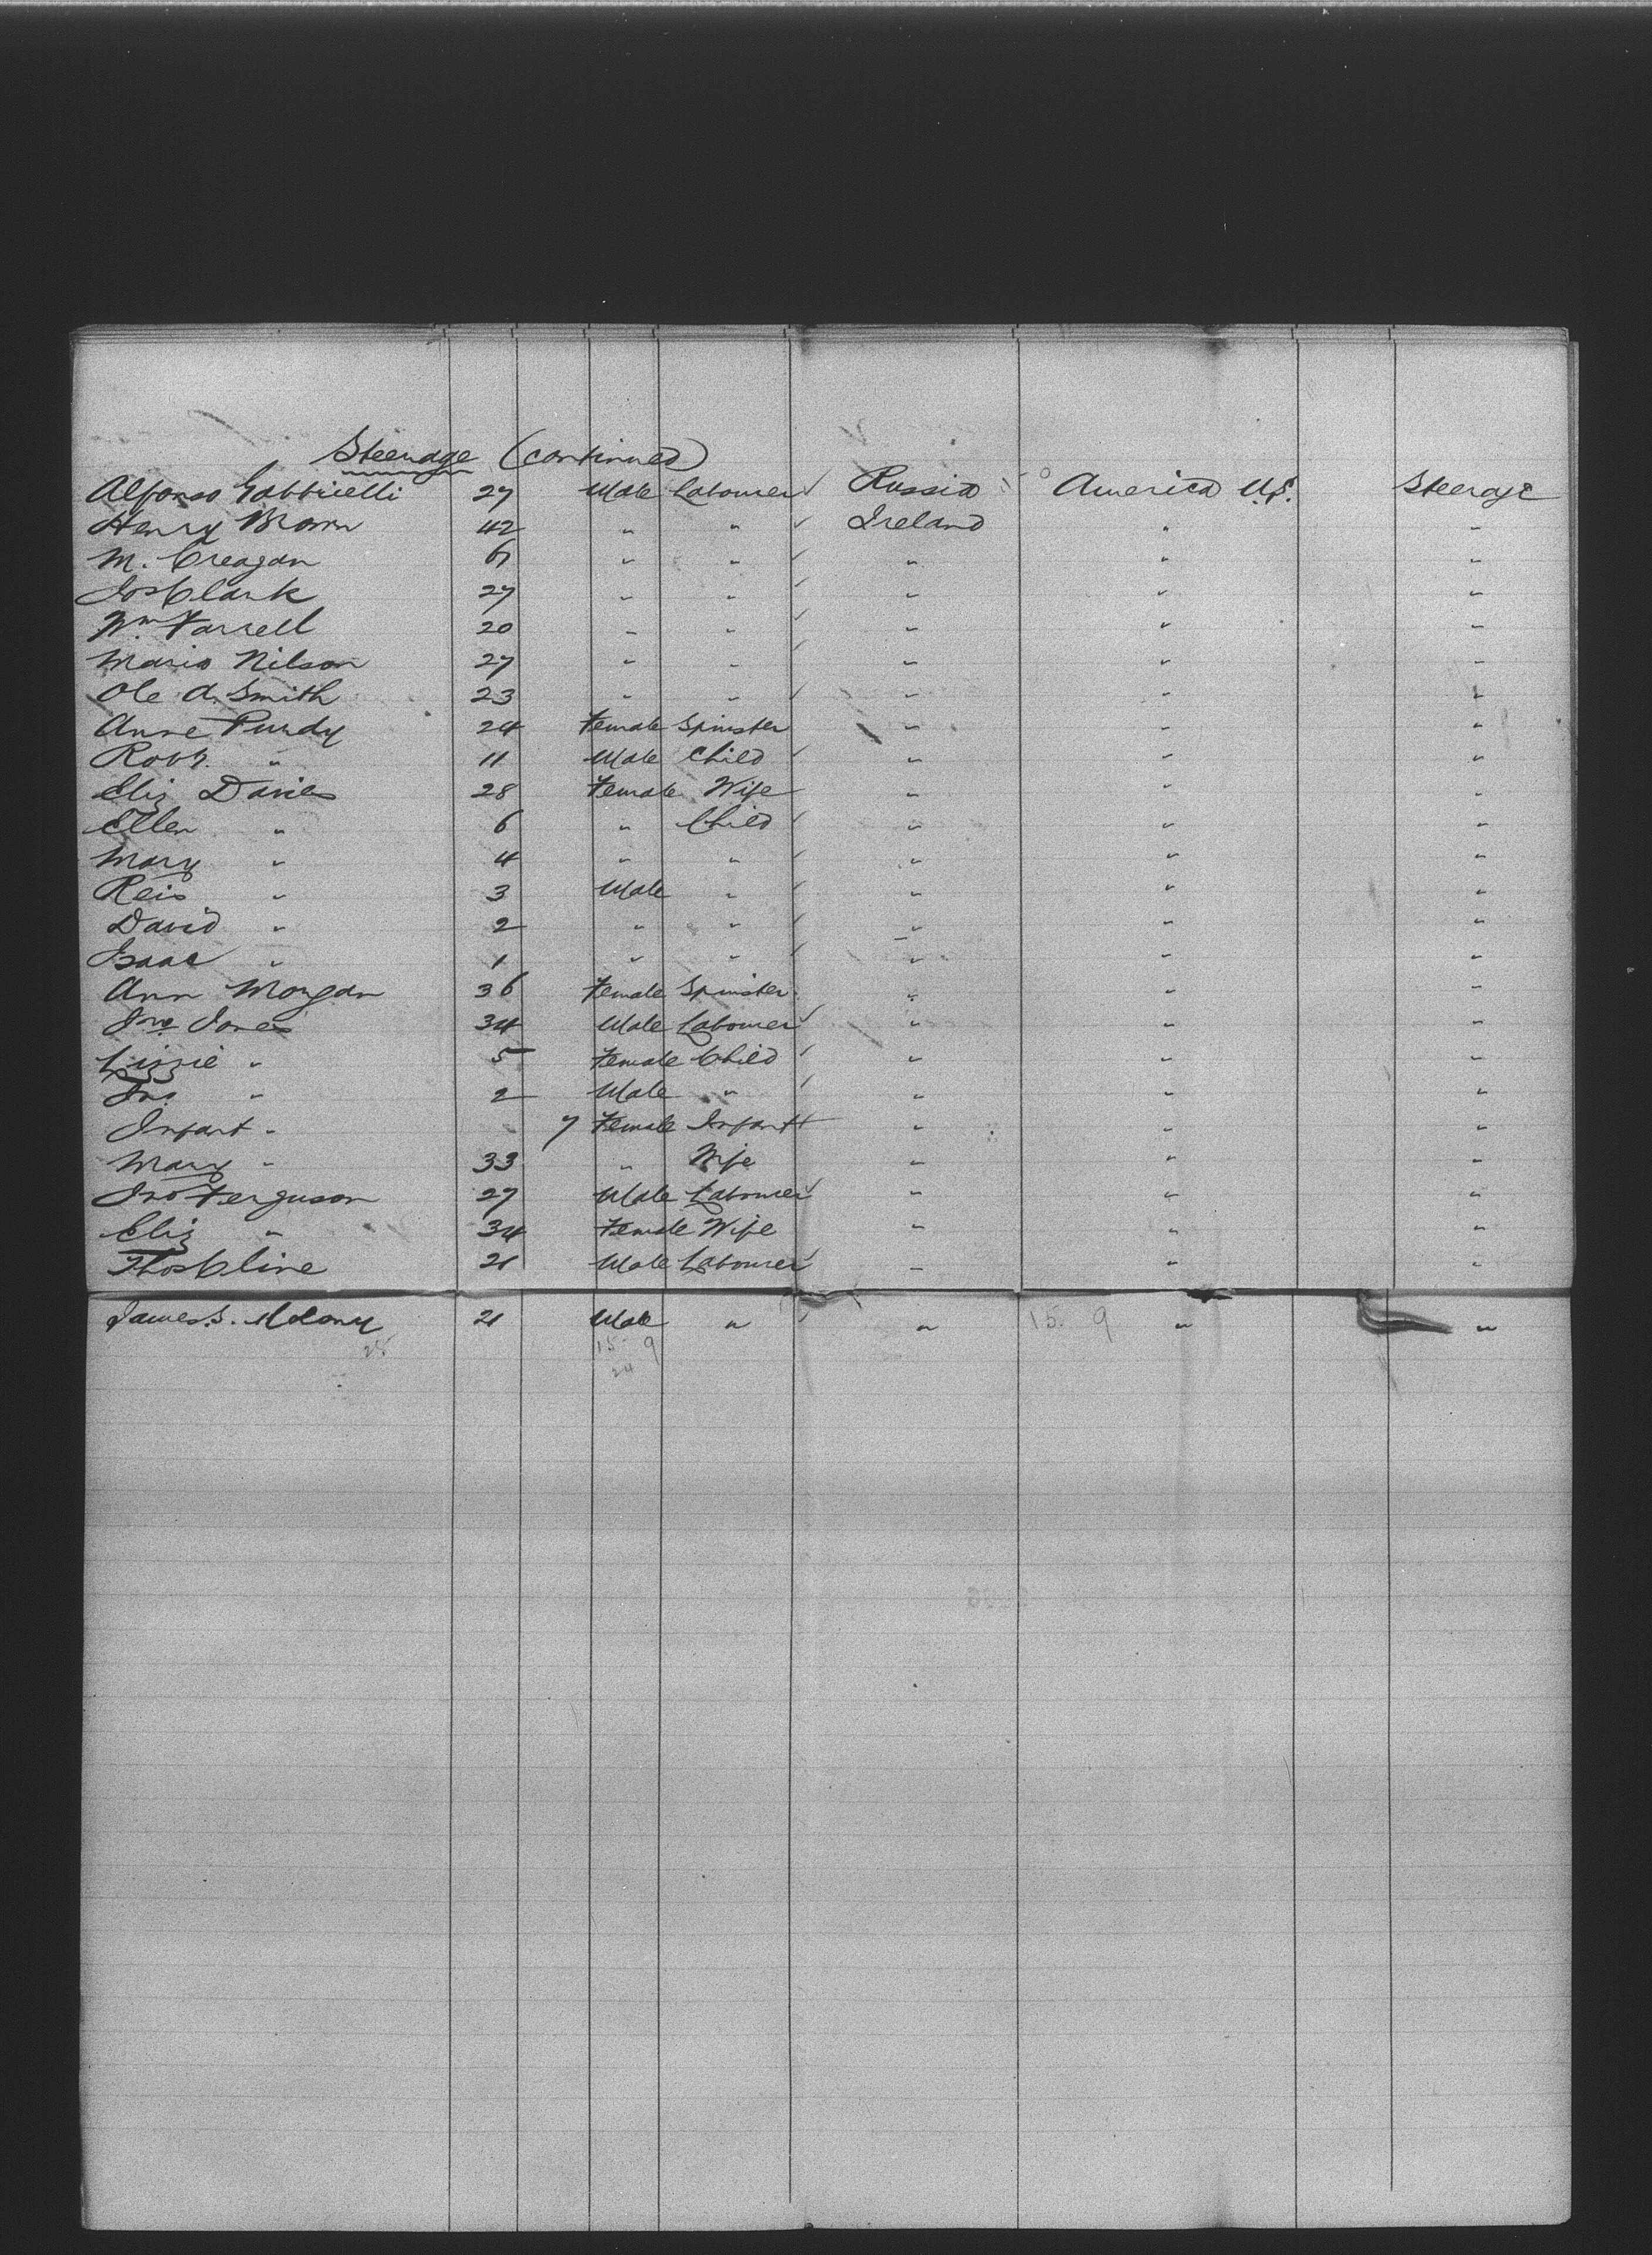 Steerage (continued)
Alfonso Gabbrielli 27 Male Labourer Russia America U.S. Steerage
Henry Brown 42 " " Ireland " "
M. Creagan " " " " "
Jos Clark 27 " " " " "
Wm Farrell 20 " " " " "
Mario Nilson 27 " " " " "
Ole A. Smith 23 " " " " "
Anne Purdy 24 Female Spinster " " "
Robt. " 11 Male Child " " "
Eliz Davies 28 Female Wife " " "
Ellen " 6 " Child " " "
Mary " 4 " " " " "
Reis " 3 Male " " " "
David " 2 " " " " "
Isaac " 1 " " " " "
Ann Morgan 36 Female Spinster " " "
Jno Jones 34 Male Labourer " " "
Lizzie " 5 Female Child " " "
Jno " 2 Male " " " "
Infant " 7 Female Infant " " "
Mary " 33 " Wife " " "
Jno Ferguson 27 Male Labourer " " "
Eliz " 34 Female Wife " " "
Thos Cline 21 Male Labourer " " "
James S. 21 Male " " 15. 9 " "
25 15 9
24